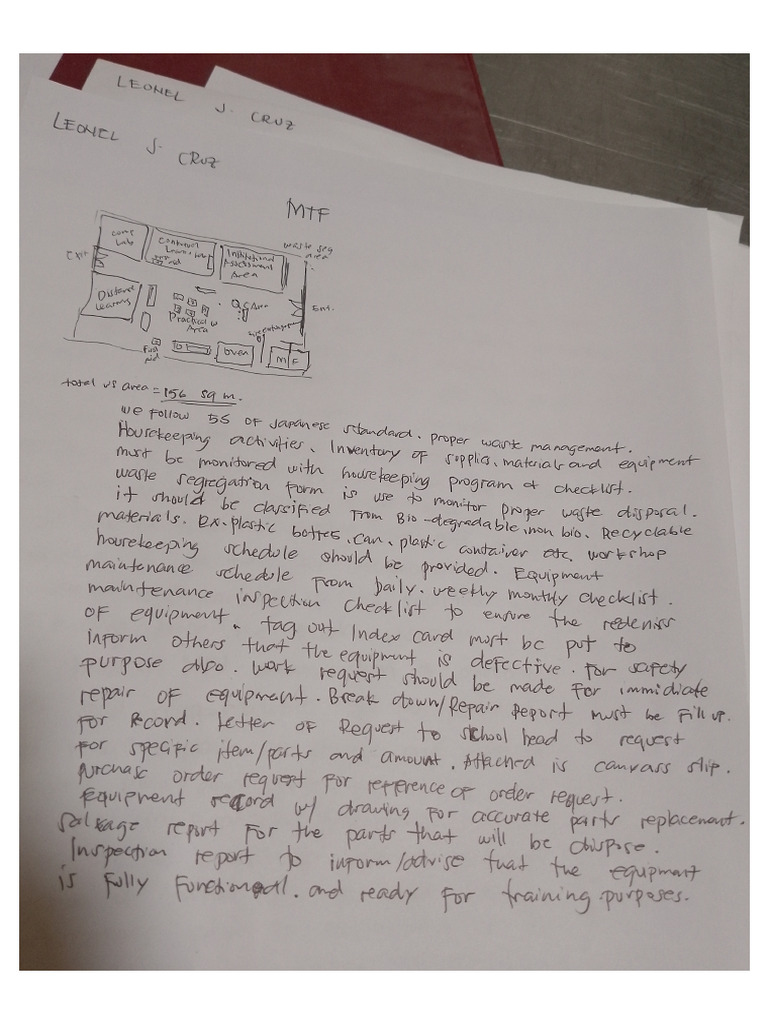 LEONEL J. CRUZ
LEONEL J. CRUZ
MTF
Comp Lab
Contextual Learning
Institutional Assessment Area
waste seg area
Exit
Distance Learning
Practical W Area
QC Area
Ent.
First aid
Oven
MTF
total ws area = 156 sq m.
we follow 5S of Japanese standard. proper waste management.
Housekeeping activities. Inventory of supplies, materials and equipment
must be monitored with housekeeping program & checklist.
waste segregation form is use to monitor proper waste disposal.
it should be classified from Bio-degradable, non bio. Recyclable
materials. Ex. plastic bottes, can, plastic container etc. workshop
housekeeping schedule should be provided. Equipment
maintenance schedule from Daily. weekly monthly checklist.
maintenance inspection checklist to ensure the rediniss
of equipment. tag out Index card must be put to
inform others that the equipment is defective. for safety
purpose also. work request should be made for immidiate
repair of equipment. Break down/Repair Report must be fill up.
for Record. Letter of Request to school head to request
for specific item/parts and amount. Attached is canvass slip.
purchase order request for refference of order request.
Equipment record w/ drawing for accurate parts replacement.
Salvage report for the parts that will be dispose.
Inspection report to inform/advise that the equipment
is fully functional. and ready for training purposes.